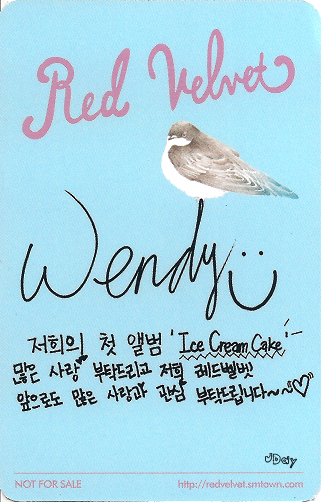 Red Velvet
Wendy
저희의 첫 앨범 'Ice Cream Cake'
많은 사랑 부탁드리고 저희 레드벨벳
앞으로도 많은 사랑과 관심 부탁드립니다~~♡"
NOT FOR SALE
http://redvelvet.smtown.com